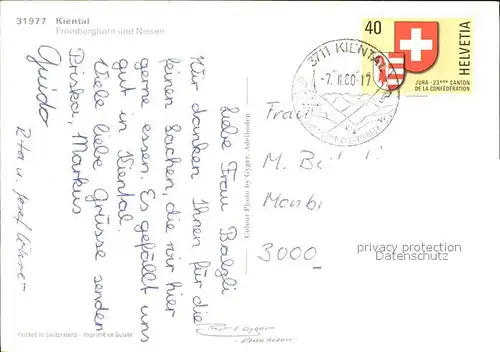 31977 Kiental
Fromberghorn und Niesen
Liebe Frau Balzli
Wir danken Ihnen für die
feinen Sachen, die wir hier
gerne essen. Es gefällt uns
gut in Kiental.
Viele liebe Grüsse senden
Priska, Markus
Guido
Rita u. Josef
Colour Photo by Gyger, Adelboden
Printed in Switzerland - Imprimé en Suisse
Gyger
Adelboden
3711 KIENTAL
40
HELVETIA
JURA - 23ème CANTON
DE LA CONFÉDÉRATION
Frau
M.
3000
privacy protection
Datenschutz